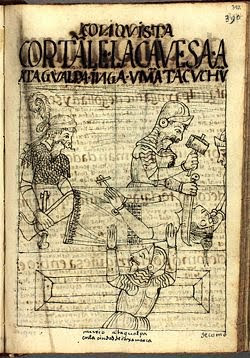 390
CONQVISTA
CORTÃLE LA CAVESA A
ATAGVALPA INGA VMATA CVCHV
murio atagualpa
en la ciudad de caxamarca
como